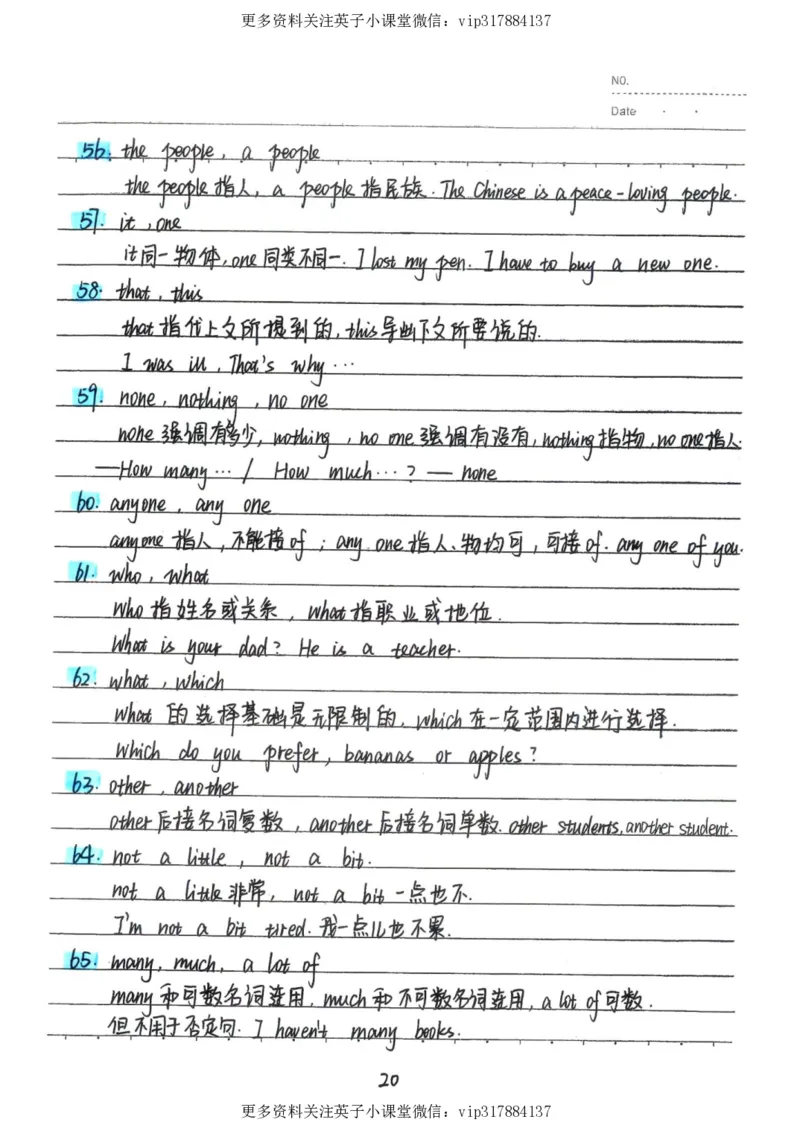 更多资料关注英子小课堂微信：vip317884137
NO.
Date
56. the people, a people
the people 指人, a people 指民族. The Chinese is a peace-loving people.
57. it, one
it同一物体, one 同类不同一. I lost my pen. I have to buy a new one.
58. that, this
that 指代上文所提到的, this导出下文所要说的.
I was ill, That's why …
59. none, nothing, no one
none 强调有多少, nothing, no one 强调有没有, nothing指物, no one指人.
—How many … / How much …? — none
60. anyone, any one
anyone 指人, 不能接of; any one 指人、物均可, 可接of. any one of you.
61. who, what
Who 指姓名或关系, what 指职业或地位.
What is your dad? He is a teacher.
62. what, which
what 的选择基础是无限制的, which 在一定范围内进行选择.
Which do you prefer, bananas or apples?
63. other, another
other 后接名词复数, another 后接名词单数. other students, another student.
64. not a little, not a bit.
not a little 非常, not a bit 一点也不.
I'm not a bit tired. 我一点儿也不累.
65. many, much, a lot of
many 和可数名词连用, much 和不可数名词连用, a lot of 可数.
但不用于否定句. I haven't many books.
20
更多资料关注英子小课堂微信：vip317884137